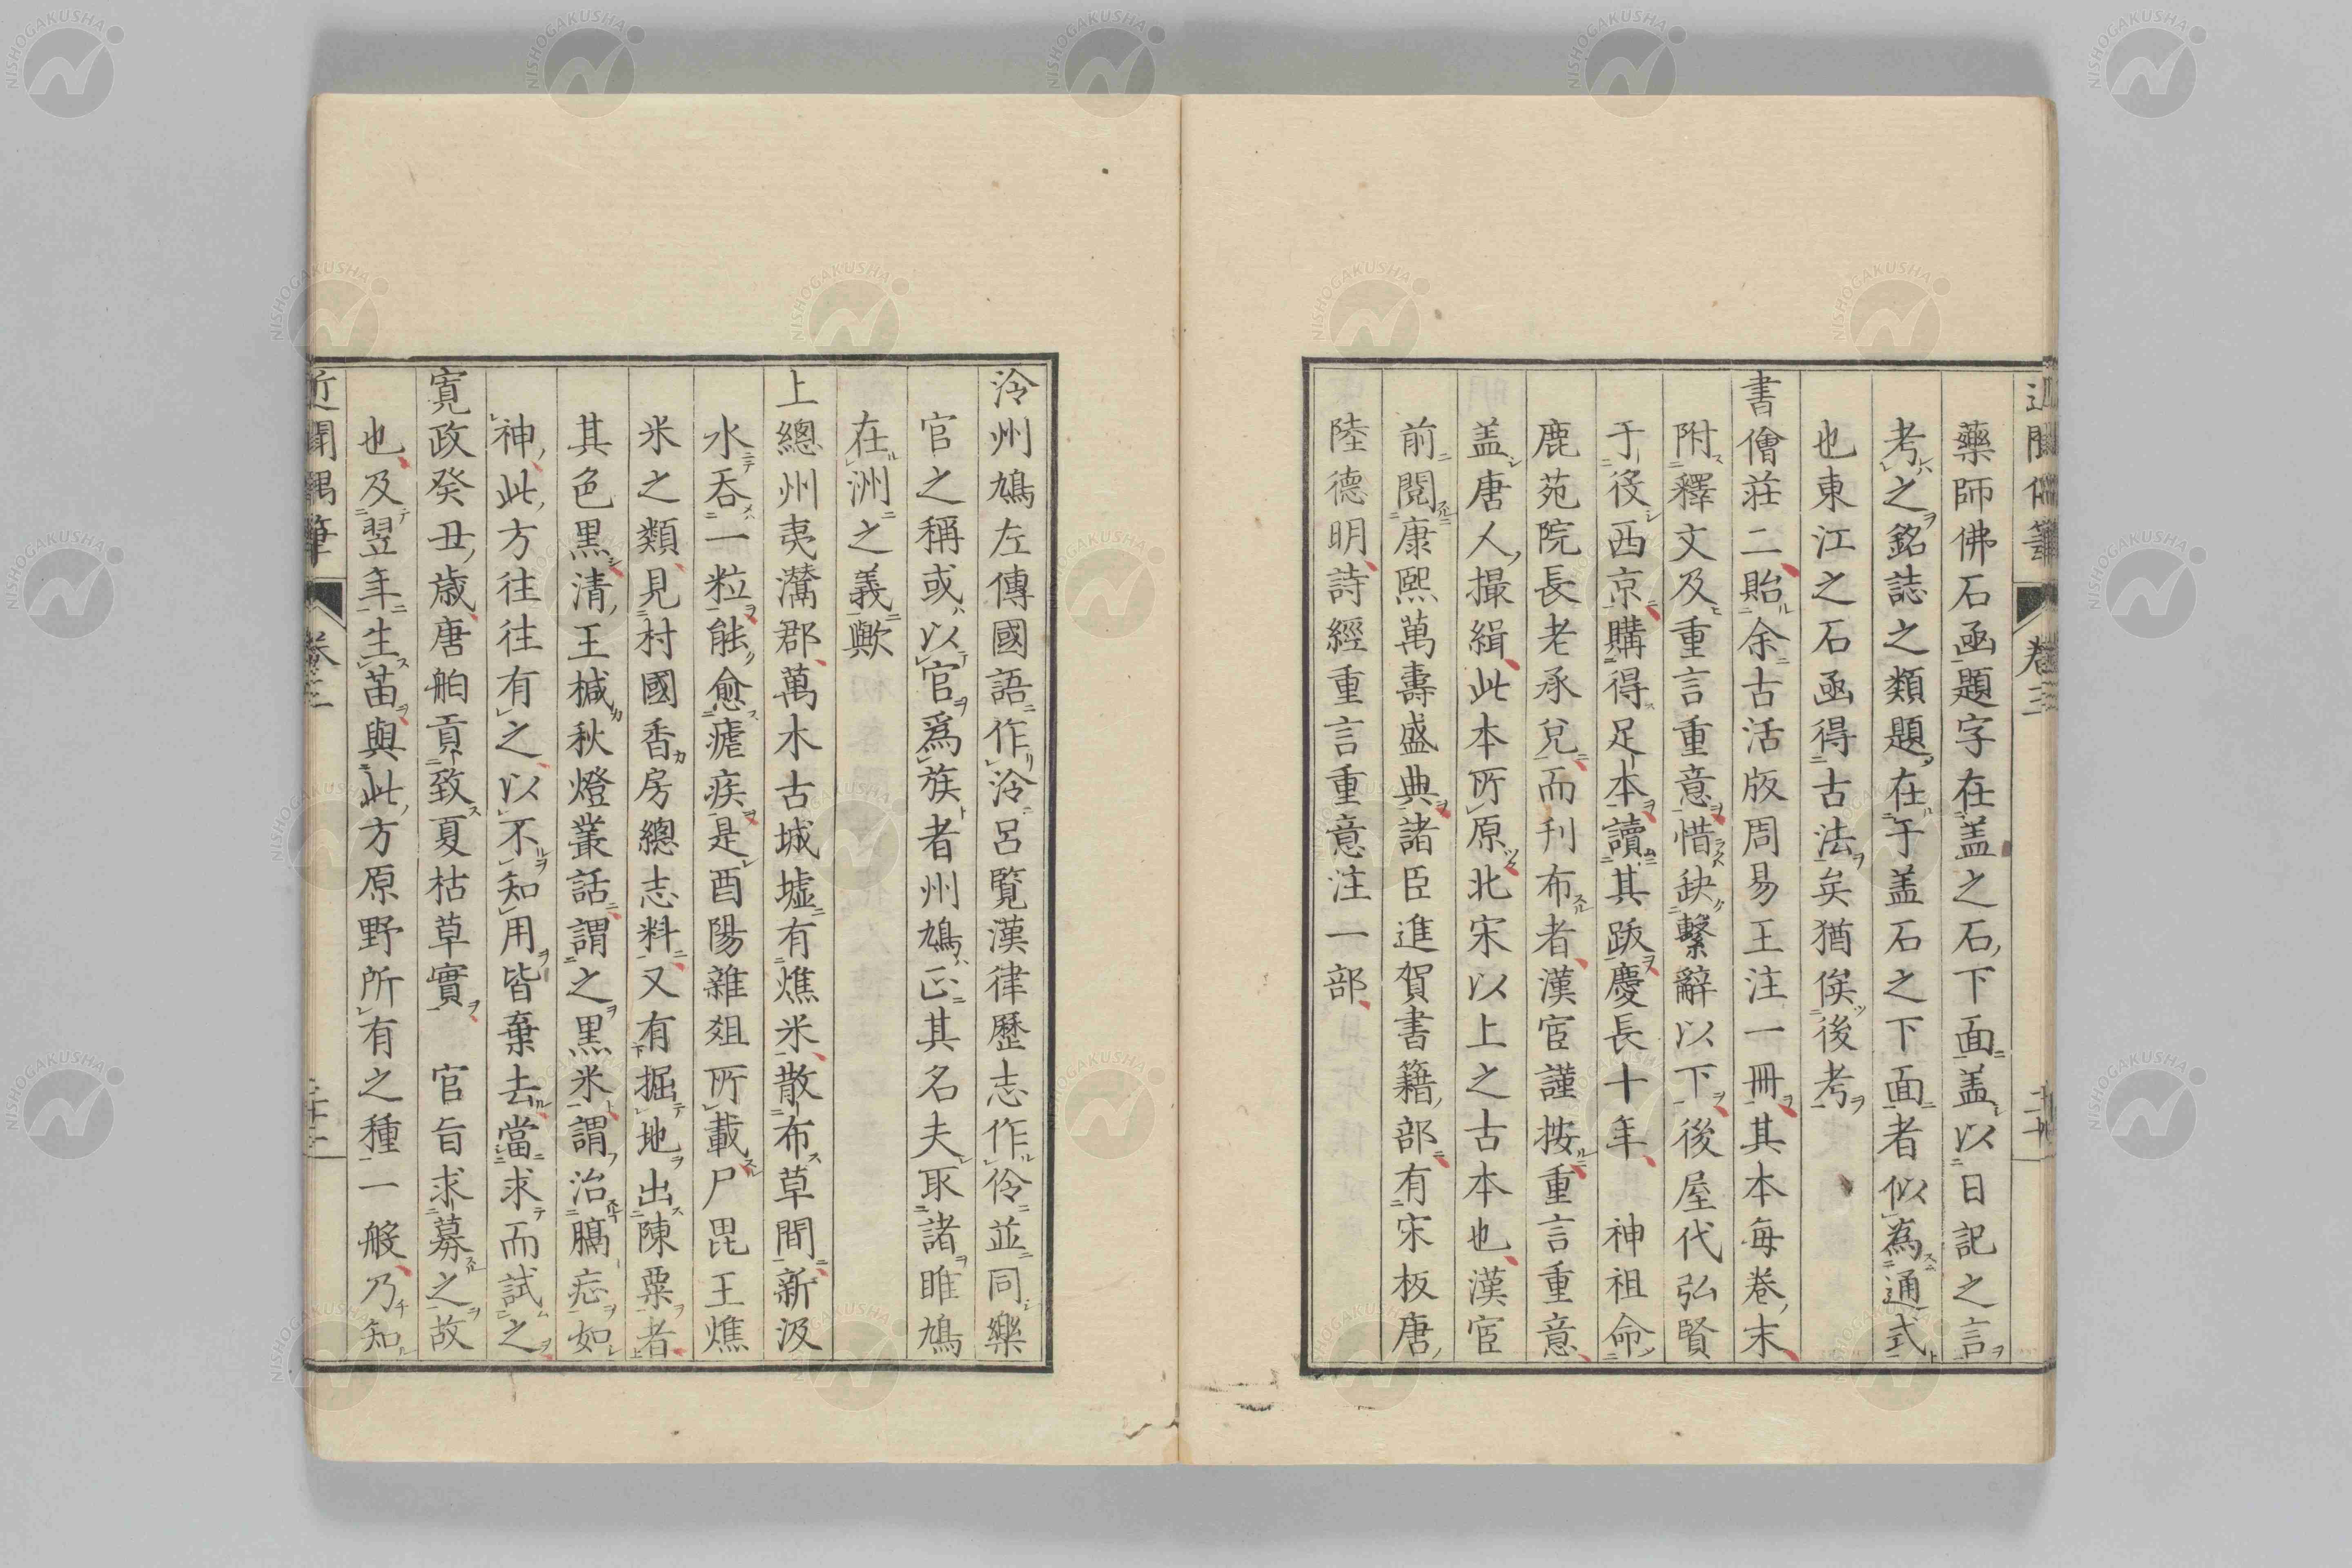 藥師佛石函題字在盖之石下面盖以日記之言
考之銘誌之類題在于盖石之下面者似為通式
也東江之石函得古法矣猶俟後考
書儈莊二貽余古活版周易王注一冊其本每卷末
附釋文及重言重意惜缺繫辭以下後屋代弘賢
于役西京購得足本讀其跋慶長十年　神祖命
鹿苑院長老承兌而刊布者漢宦謹按重言重意
盖唐人撮緝此本所原北宋以上之古本也漢宦
前閱康熙萬壽盛典諸臣進賀書籍部有宋板唐
陸德明詩經重言重意注一部
泠州鳩左傳國語作泠呂覽漢律歷志作伶並同樂
官之稱或以官爲族者州鳩正其名夫取諸雎鳩
在洲之義歟
上總州夷灊郡萬木古城墟有燋米散布草間新汲
水吞一粒能愈瘧疾是酉陽雜俎所載尸毘王燋
米之類見村國香房總志料又有掘地出陳粟者
其色黒清王椷秋燈叢話謂之黒米謂治膈症如
神此方往往有之以不知用皆棄去當求而試之
寛政癸丑歲唐舶貢致夏枯草實　官旨求募之故
也及翌年生苗與此方原野所有之種一般乃知
近聞偶筆
卷三
NISHOGAKUSHA